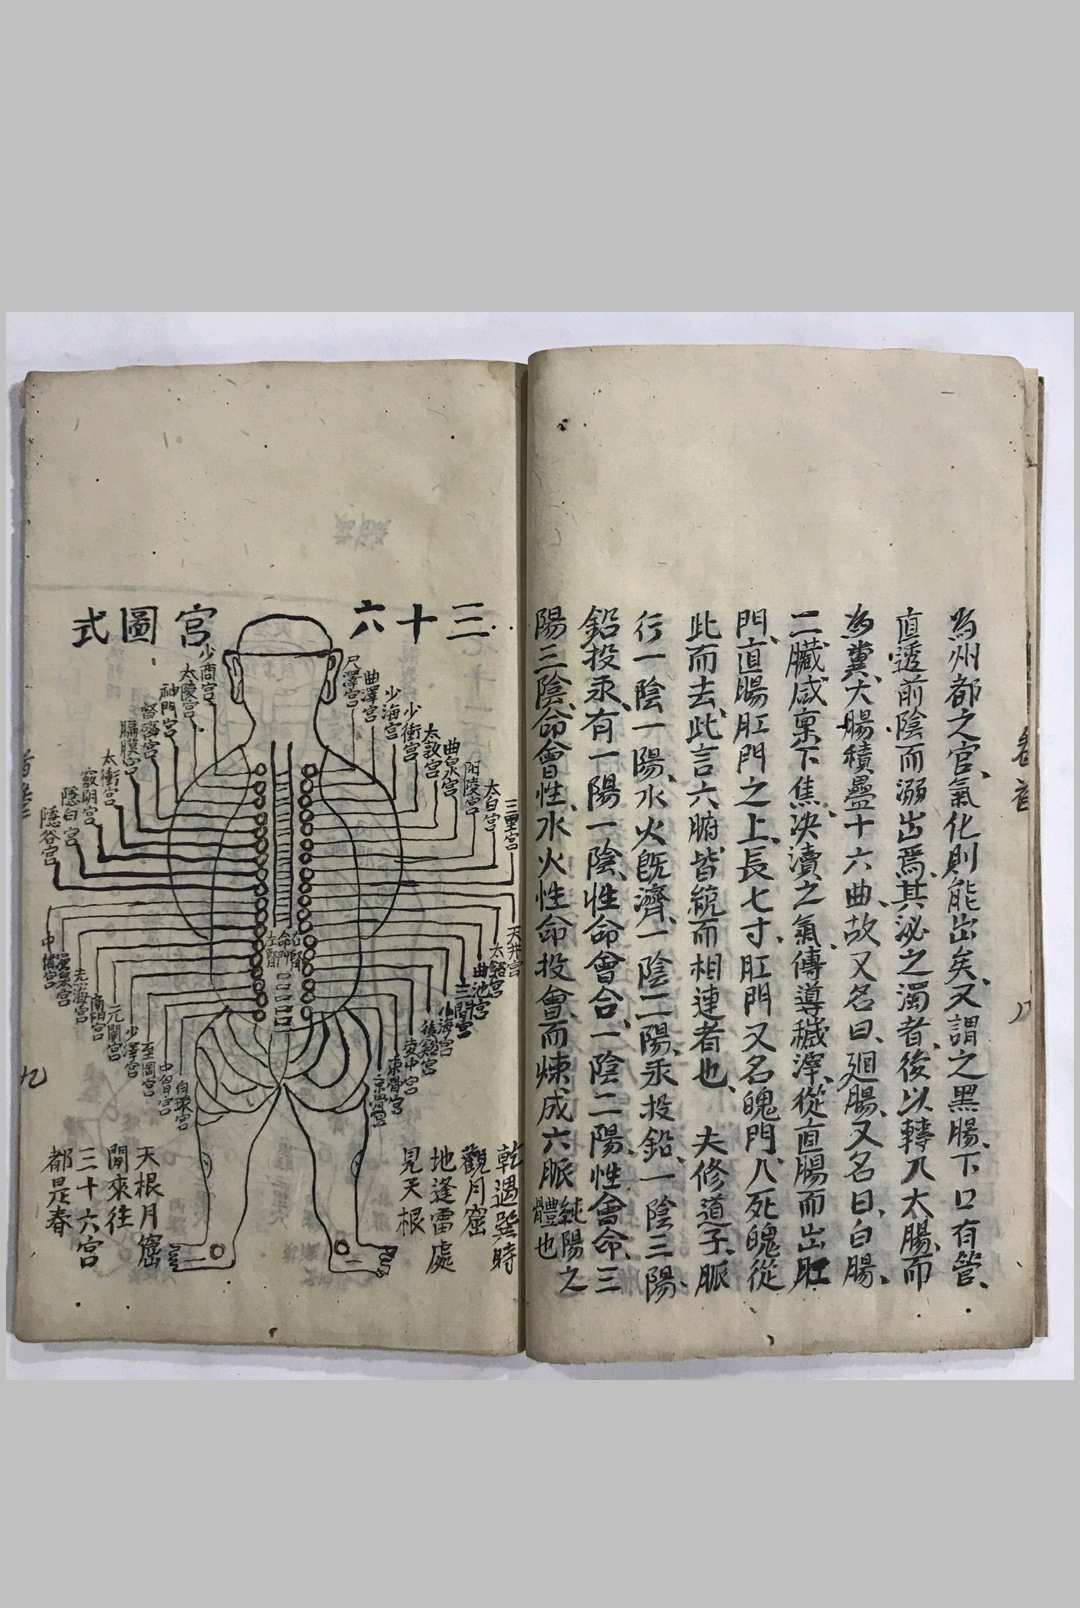 為州都之官、氣化則能出矣、又謂之黑腸、下口有管、
直透前陰而溺出焉、其泌之濁者、後以轉入大腸、而
為糞、大腸積疊十六曲、故又名曰、廻腸、又名曰、白腸、
二臟、咸稟下焦、決瀆之氣、傳導穢滓、從直腸而出肛
門、直腸肛門之上、長七寸、肛門又名魄門、人死魄從
此而去、此言六腑、皆統而相連者也、夫修道子、脈
行一陰一陽、水火既濟、一陰二陽、汞投鉛、一陰三陽、
鉛投汞、有一陽一陰、性命會合、一陰二陽、性會命、三
陽三陰、命會性、水火性命投會、而煉成六脈純陽之
體也
卷首
八
三十六宮圖式
尺澤宮
曲澤宮
少海宮
少衝宮
太敦宮
曲泉宮
陽陵宮
太白宮
三里宮
少商宮
太陵宮
神門宮
太衝宮
隱白宮
隱谷宮
天井宮
曲池宮
三間宮
小海宮
委中宮
京骨宮
商陽宮
少澤宮
命門
乾遇巽時
觀月窟
地逢雷處
見天根
天根月窟
閒來往
三十六宮
都是春
九